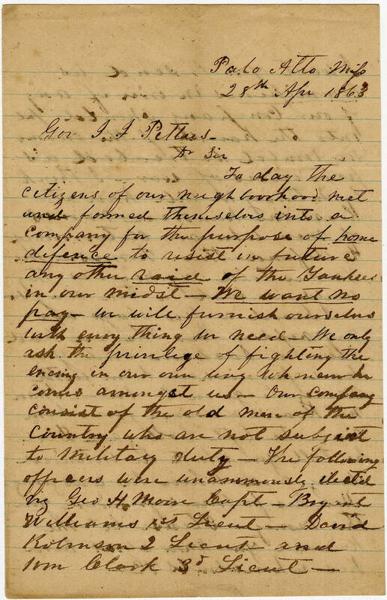 Palo Alto Miss
28th Apr 1863
Gov J J Pettus
Dr Sir
To day the
citizens of our neighborhood met
and formed themselves into a
company for the purpose of home
defence to resist in future
any other raid of the Yankees
in our midst – We want no
pay – we will furnish ourselves
with every thing we need – We only
ask the privilege of fighting the
enemy in our own way whenever he
comes amongst us – Our company
consist of the old men of the
Country who are not subject
to Military duty – The following
officers were unanimously elected
viz Geo H Moore Capt – Bryant
Williams 1st Lieut – David
Robinson 2 Lieut and
Wm Clark 3d Lieut –